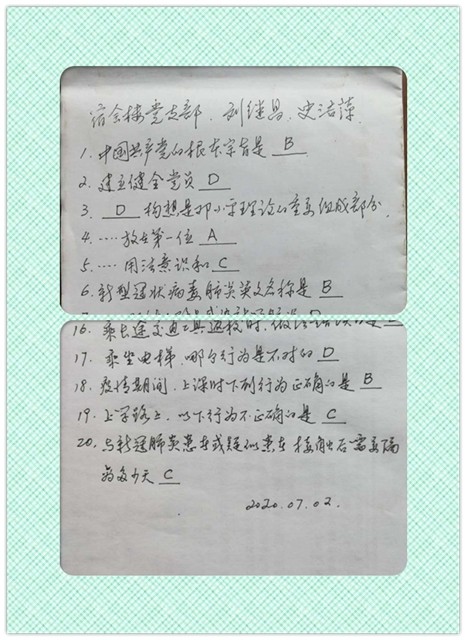 宿舍楼党支部、刘继昌、史洁萍
1. 中国共产党的根本宗旨是 B
2. 建立健全党员 D
3. D 构想是邓小平理论的重要组成部分.
4. ····放在第一位 A
5. ····用法意识和 C
6. 新型冠状病毒肺炎英文名称是 B
16. 乘长途交通工具返校时,
17. 乘坐电梯,哪个行为是不对的 D
18. 疫情期间,上课时下列行为正确的是 B
19. 上学路上,以下行为不正确的是 C
20. 与新冠肺炎患者或疑似患者接触后需要隔
离多少天 C
2020.07.02.